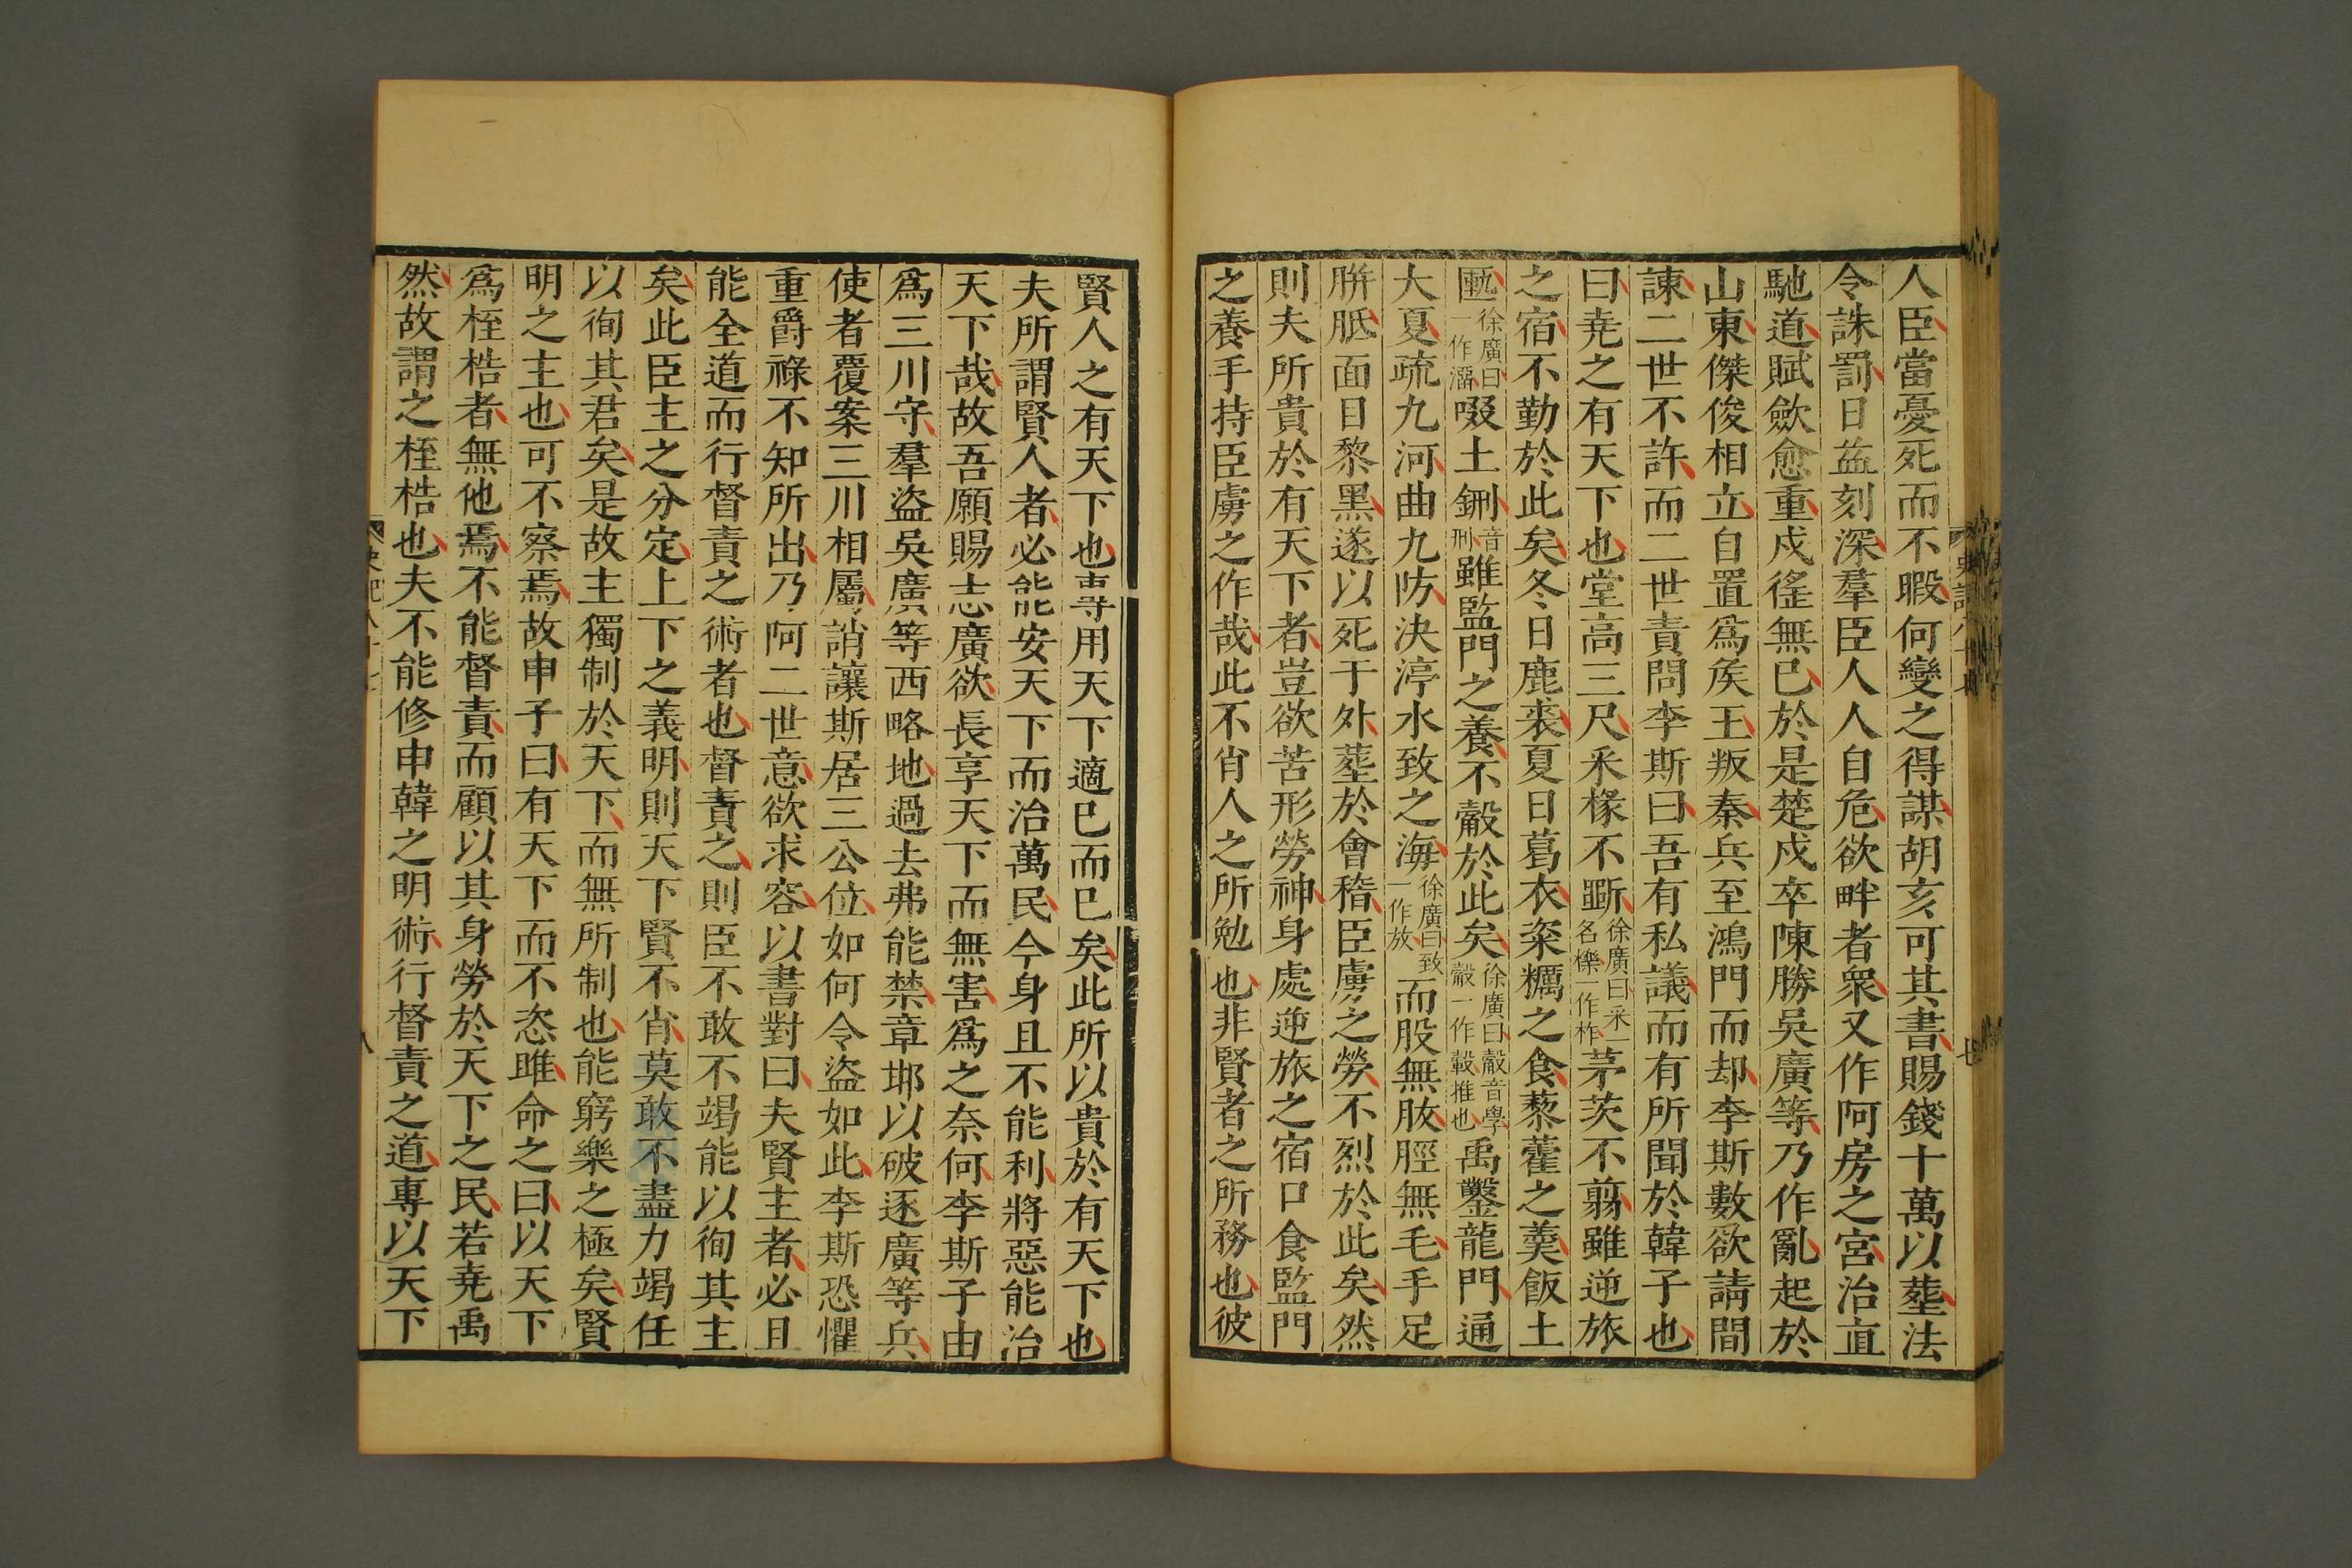 人臣當憂死而不暇何變之得謀胡亥可其書賜錢十萬以塟法
令誅罰日益刻深羣臣人人自危欲畔者衆又作阿房之宮治直
馳道賦歛愈重戍徭無已於是楚戍卒陳勝吳廣等乃作亂起於
山東傑俊相立自置爲矦王叛秦兵至鴻門而却李斯數欲請間
諫二世不許而二世責問李斯曰吾有私議而有所聞於韓子也
曰尭之有天下也堂高三尺采椽不斲徐廣曰采一名櫟一作柞茅茨不翦雖逆旅
之宿不勤於此矣冬日鹿裘夏日葛衣粢糲之食藜藿之羹飯土
匭徐廣曰一作溜啜土鉶音刑雖監門之養不觳於此矣徐廣曰觳音學觳一作㲉推也禹鑿龍門通
大夏疏九河曲九防決渟水致之海徐廣曰致一作放而股無胈脛無毛手足
胼胝面目黎黑遂以死于外塟於會稽臣虜之勞不烈於此矣然
則夫所貴於有天下者豈欲苦形勞神身處逆旅之宿口食監門
之養手持臣虜之作哉此不肖人之所勉也非賢者之所務也彼
賢人之有天下也專用天下適已而已矣此所以貴於有天下也
夫所謂賢人者必能安天下而治萬民今身且不能利將惡能治
天下哉故吾願賜志廣欲長享天下而無害爲之奈何李斯子由
爲三川守羣盜吳廣等西略地過去弗能禁章邯以破逐廣等兵
使者覆案三川相屬誚讓斯居三公位如何令盜如此李斯恐懼
重爵祿不知所出乃阿二世意欲求容以書對曰夫賢主者必且
能全道而行督責之術者也督責之則臣不敢不竭能以徇其主
矣此臣主之分定上下之義明則天下賢不肖莫敢不盡力竭任
以徇其君矣是故主獨制於天下而無所制也能窮樂之極矣賢
明之主也可不察焉故申子曰有天下而不恣睢命之曰以天下
爲桎梏者無他焉不能督責而顧以其身勞於天下之民若尭禹
然故謂之桎梏也夫不能修申韓之明術行督責之道專以天下
八